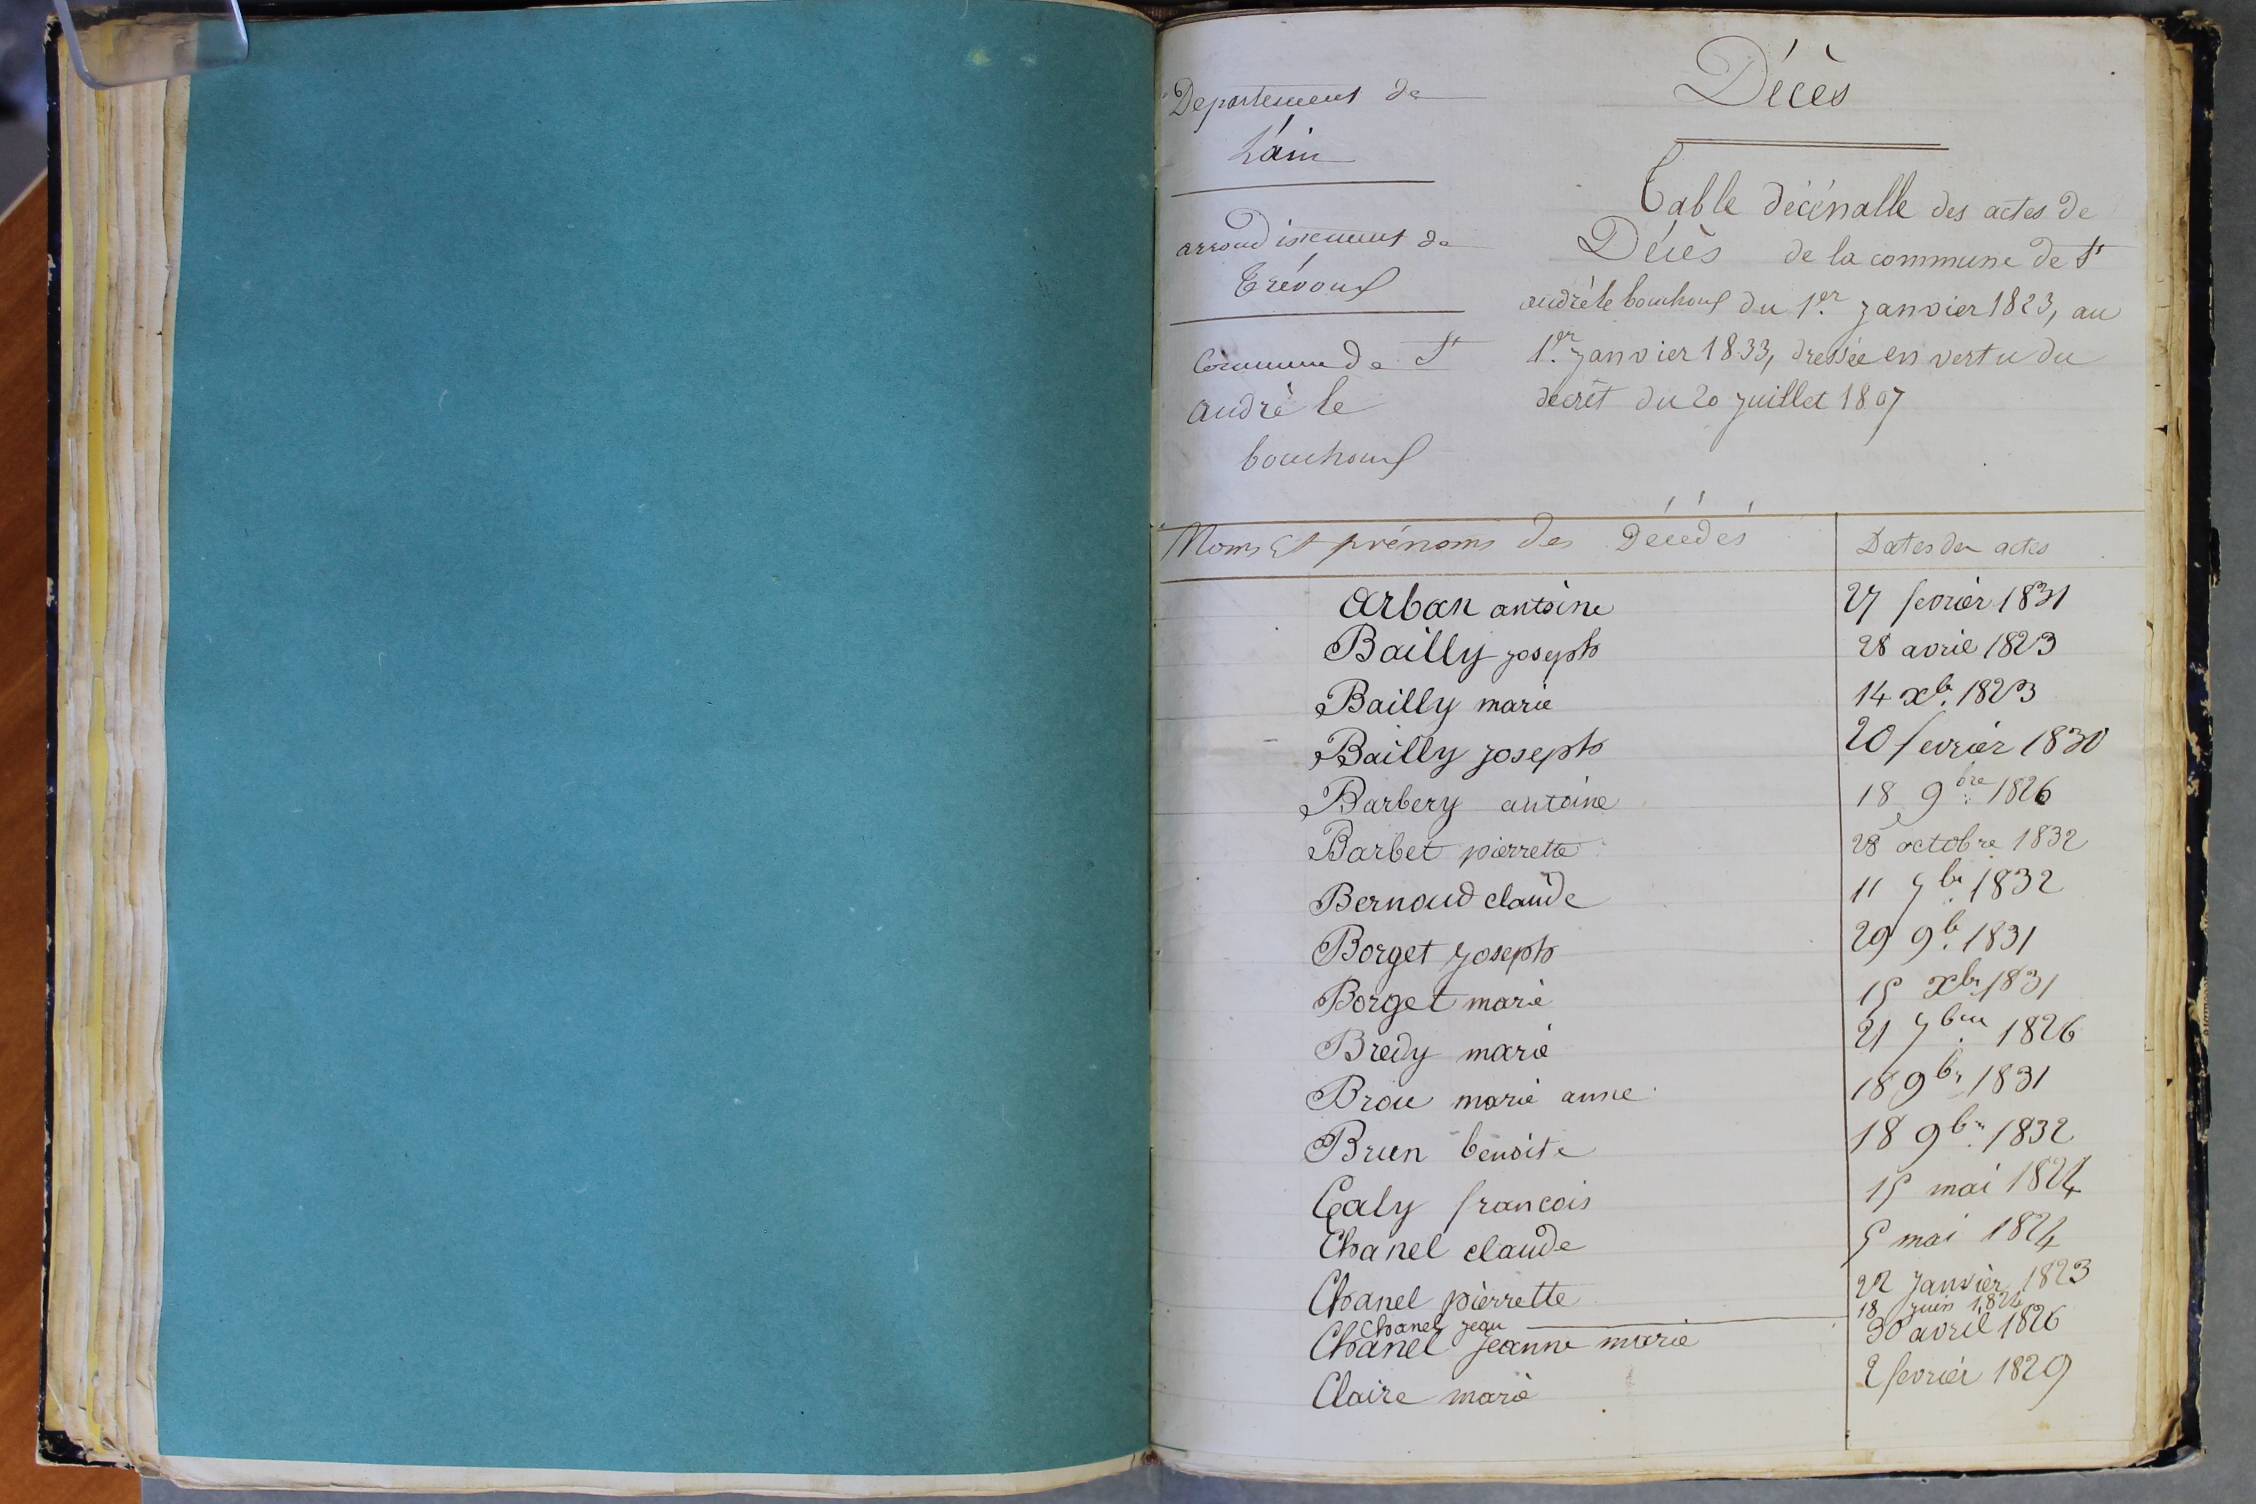 Departement de
L'ain
arrondissement de
Trévoux
Commune de St
andré le
bouchoux
Décès
Table décénalle des actes de
Décès de la commune de St
andré le bouchoux du 1er janvier 1823, au
1er janvier 1833, dressée en vertu du
decrêt du 20 juillet 1807
Noms Et prénoms des Décédés Dates des actes
arban antoine 27 fevrier 1831
Bailly joseph 28 avril 1823
Bailly marie 14 xb. 1823
Bailly joseph 20 fevrier 1830
Barbery antoine 18 9bre 1826
Barbet pierrette 28 octobre 1832
Bernoud claude 11 7br 1832
Borget joseph 29 9b. 1831
Borget marie 15 xbr 1831
Bredy marie 21 7bre 1826
Brou marie anne 18 9br 1831
Brun benoite 18 9br 1832
Caly francois 15 mai 1824
Chanel claude 5 mai 1824
Chanel pierrette 22 janvier 1823
Chanel jean 18 juin 1824
Chanel jeanne marie 30 avril 1826
Claire marie 2 fevrier 1829